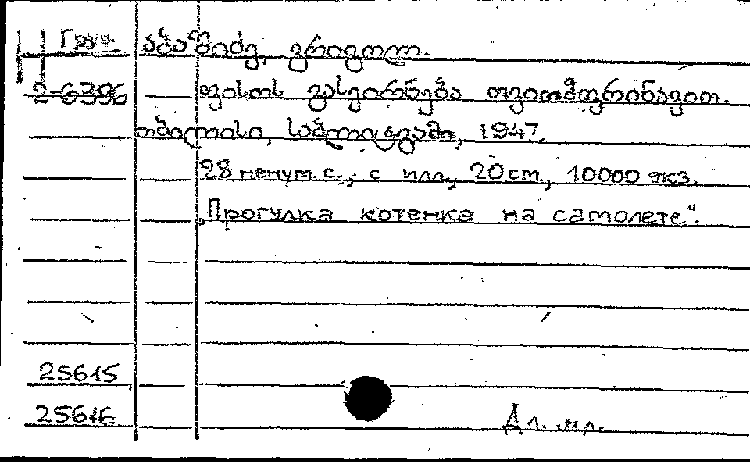 Груз. აბაშიძე, გრიგოლ.
2-6396 ფისოს გასეირნება თვითმფრინავით.
თბილისი, საბლიტგამი, 1947.
28 ненум. с., с илл., 20 cm., 10000 экз.
„Прогулка котенка на самолете".
25615
25616 Дл. мл.